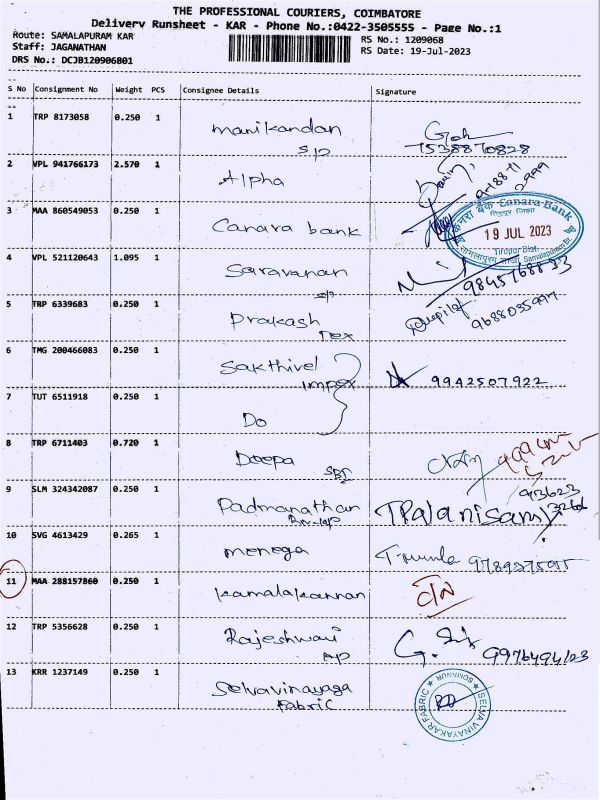 THE PROFESSIONAL COURIERS, COIMBATORE
Delivery Runsheet - KAR - Phone No.:0422-3505555 - Page No.:1
Route: SAMALAPURAM KAR
RS No.: 1209068
Staff: JAGANATHAN
RS Date: 19-Jul-2023
DRS No.: DCJB120906801
S No Consignment No Weight PCS Consignee Details Signature
1 TRP 8173058 0.250 1 Manikandan
S/P 7538870828
2 VPL 941766173 2.570 1 Alpha
3 MAA 860549053 0.250 1 Canara bank
केनरा बैंक Canara Bank
19 JUL 2023
Tirupur Dist.
Samalapuram Br.
4 VPL 521120643 1.095 1 Saravanan
S/P 9845768833
5 TRP 6339683 0.250 1 Prakash
Tex 9688035997
6 TMG 200466083 0.250 1 Sakthivel
Impex 9942507922
7 TUT 6511918 0.250 1 Do
8 TRP 6711403 0.720 1 Deepa
9 SLM 324342087 0.250 1 Padmanathan TPalanisamy
10 SVG 4613429 0.265 1 Menega
11 MAA 288157860 0.250 1 Kamalakannan
12 TRP 5356628 0.250 1 Rajeshwari
13 KRR 1237149 0.250 1 Selvavinayaga
Fabric
SELVA VINAYAKAR FABRIC
SOMANUR